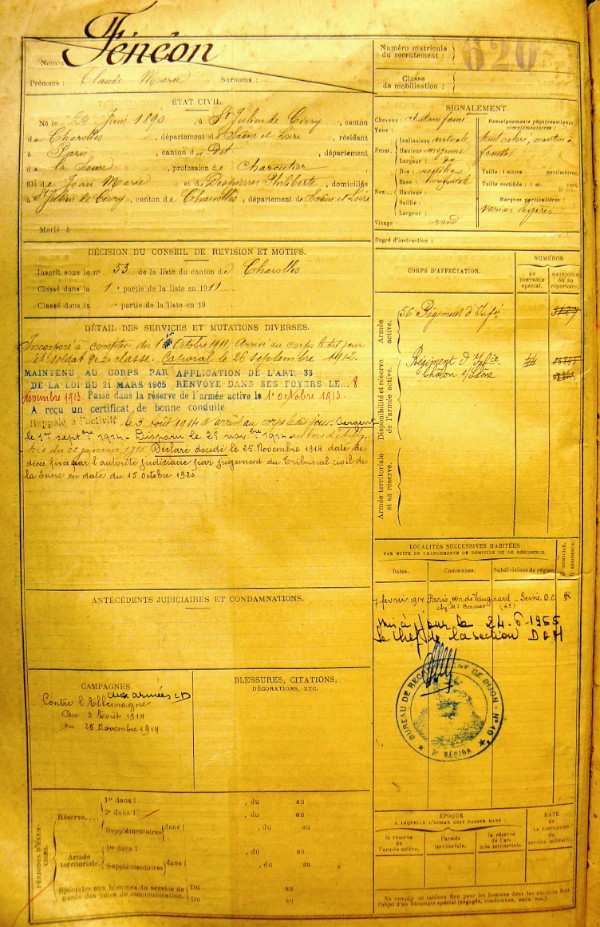 Fénéon
Nom :
Prénoms : Claude Marie Surnoms :
Numéro matricule
du recrutement :
620
Classe
de mobilisation :
ÉTAT CIVIL.
Né le 20 Juin 1890, à St Julien de Civry, canton
de Charolles, département de Saône et Loire, résidant
à Paris, canton du dit, département
de la Seine, profession de Charcutier
fils de Jean Marie et de Despierres Philiberte, domiciliés
à St Julien de Civry, canton de Charolles, département de Saône et Loire
Marié à
SIGNALEMENT.
Cheveux châtain foncé
Yeux
Front.
Inclinaison verticale
Hauteur moyenne
Largeur
Nez
Dos
Base
Hauteur
Saillie
Largeur
Visage rond
Renseignements physionomiques
complémentaires :
Taille : 1 mètre centimètres.
Taille rectifiée : 1 m. c.
Marques particulières :
varices légères
Degré d'instruction :
DÉCISION DU CONSEIL DE RÉVISION ET MOTIFS.
Inscrit sous le n° 33 de la liste du canton de Charolles
Classé dans la 1e partie de la liste en 1911
Classé dans la e partie de la liste en 19
DÉTAIL DES SERVICES ET MUTATIONS DIVERSES.
Incorporé à compter du octobre 1911, arrivé au corps le dit jour
et soldat de 2e classe. Caporal le 26 septembre 1912.
MAINTENU AU CORPS PAR APPLICATION DE L'ART. 33
DE LA LOI DU 21 MARS 1905 RENVOYÉ DANS SES FOYERS LE 8
Novembre 1913. Passé dans la réserve de l'armée active le 1er octobre 1913.
A reçu un certificat de bonne conduite
Rappelé à l'activité le 3 août 1914 arrivé au corps le dit jour. Sergent
le 1er septbre 1914. Disparu le 25 novbre 1914
du 22 janvier 1915 Déclaré décédé le 25 Novembre 1914 date de
décès fixée par l'autorité judiciaire par jugement du Tribunal civil de
la Seine en date du 15 octobre 1920
CORPS D'AFFECTATION.
NUMÉROS
AU CONTRÔLE SPÉCIAL.
MATRICULE OU AU RÉPERTOIRE.
Armée active.
56 Régiment d'Infie
Disponibilité et réserve de l'armée active.
Régiment d'Infie
Chalon s/Saône
Armée territoriale et sa réserve.
LOCALITÉS SUCCESSIVES HABITÉES
PAR SUITE DE CHANGEMENTS DE DOMICILE OU DE RÉSIDENCE.
Dates. Communes. Subdivisions de région. D. DOMICILE. R. RÉSIDENCE.
7 février 1914 Paris, de Vaugirard Seine B.C. R
Mis à jour le 24-6-1955
Le Chef de la section D & H
BUREAU DE RECRUTEMENT DE DIJON - N° 10
7e RÉGION
ANTÉCÉDENTS JUDICIAIRES ET CONDAMNATIONS.
CAMPAGNES.
aux armées CD
Contre l'Allemagne
du 3 Août 1914
au 25 Novembre 1914
BLESSURES, CITATIONS,
DÉCORATIONS, ETC.
PÉRIODES D'EXERCICES.
Réserve
1re dans l , du au
2e dans l , du au
Supplémentaires dans l , du au
Armée territoriale
1re dans l , du au
Supplémentaires dans l , du au
Spéciales aux hommes du service de garde des voies de communication. Du au
Du au
ÉPOQUE
A LAQUELLE L'HOMME DOIT PASSER DANS :
la réserve de l'armée active.
l'armée territoriale.
la réserve de l'armée territoriale
DATE
de
LA LIBÉRATION
du
service militaire.
Ne pas remplir ce tableau pour les hommes dont les services font
l'objet d'un décompte spécial (engagés, condamnés, omis, etc.)